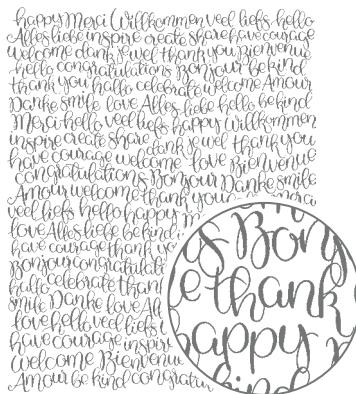 happy Merci Willkommen veel liefs hello
Alles liebe inspire create share have courage
welcome dank je wel thank you Bienvenue
hello congratulations Bonjour be kind
thank you hallo celebrate welcome Amour
Danke smile love Alles liebe hello be kind
Merci hello veel liefs happy Willkommen
inspire create share dank je wel thank you
have courage welcome love Bienvenue
congratulations Bonjour Danke smile
Amour welcome thank you
veel liefs hello happy
love Alles liebe be kind
have courage thank
Bonjour
hallo celebrate thank
smile Danke love
love hello veel liefs
have courage inspire
Welcome
Amour be kind
Bon
thank
happy
kind